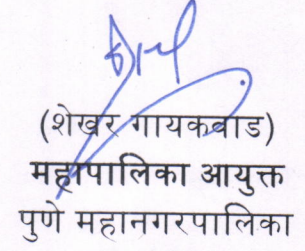 (शेखर गायकवाड)
महापालिका आयुक्त
पुणे महानगरपालिका